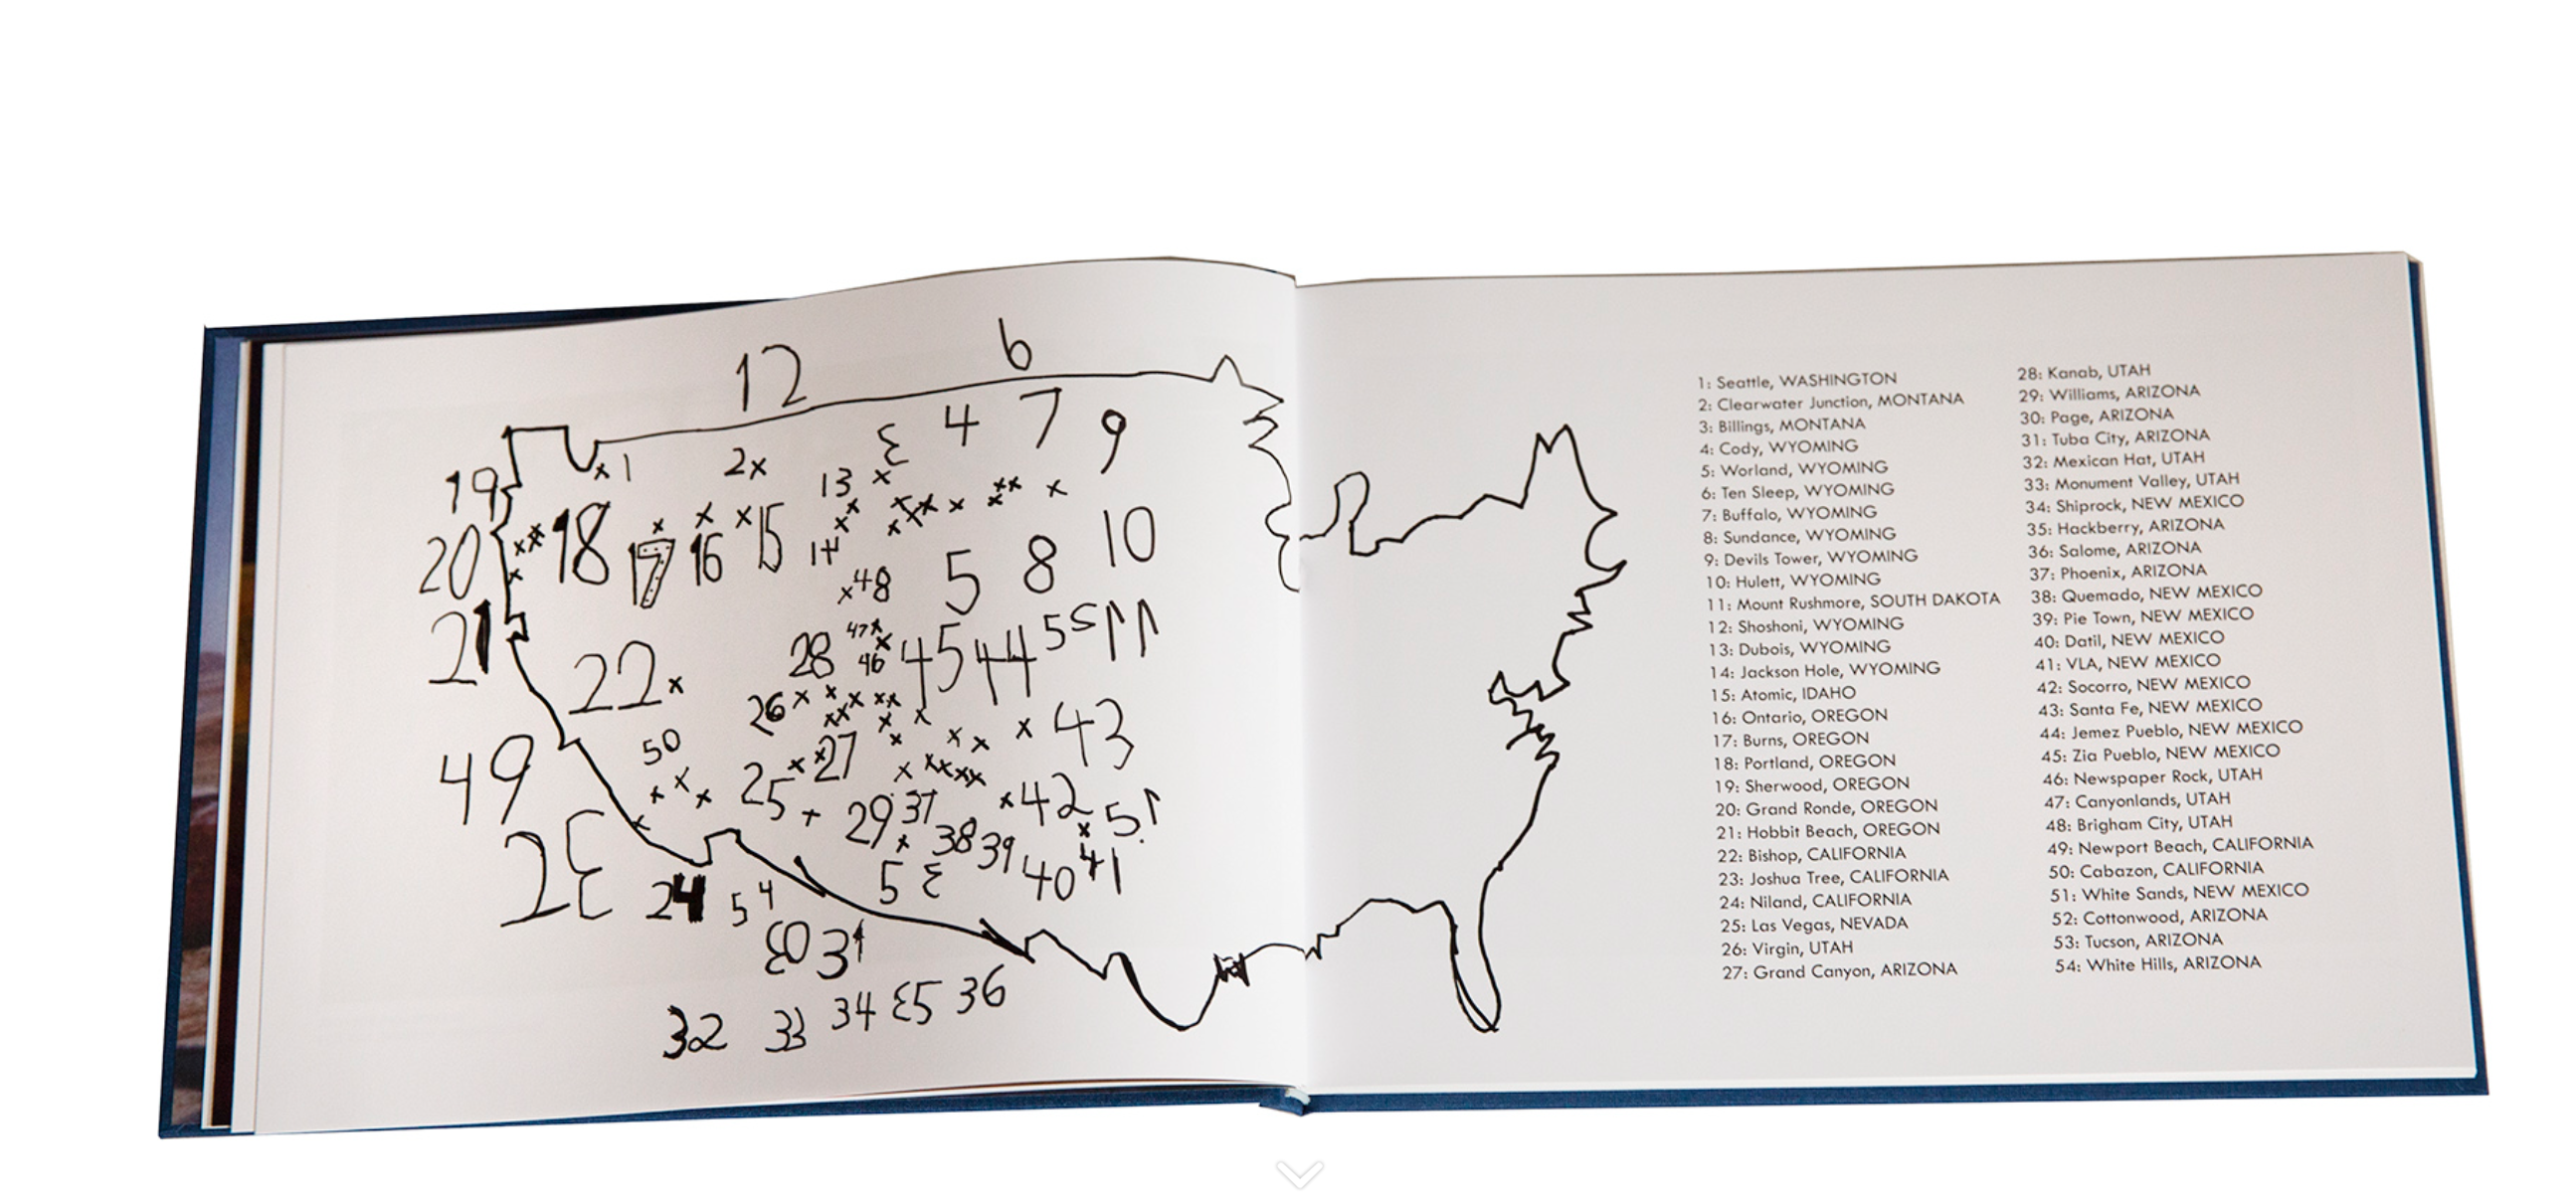 12 6
19 1 2x 3 4 7 9
13
20 18 17 16 15 14 5 8 10
48
21 22 28 47 46 45 44 52 11
26
49 50 25 27 43
29 37 42 51
23 24 54 53 38 39 40 41
30 31
32 33 34 35 36
1: Seattle, WASHINGTON
2: Clearwater Junction, MONTANA
3: Billings, MONTANA
4: Cody, WYOMING
5: Worland, WYOMING
6: Ten Sleep, WYOMING
7: Buffalo, WYOMING
8: Sundance, WYOMING
9: Devils Tower, WYOMING
10: Hulett, WYOMING
11: Mount Rushmore, SOUTH DAKOTA
12: Shoshoni, WYOMING
13: Dubois, WYOMING
14: Jackson Hole, WYOMING
15: Atomic, IDAHO
16: Ontario, OREGON
17: Burns, OREGON
18: Portland, OREGON
19: Sherwood, OREGON
20: Grand Ronde, OREGON
21: Hobbit Beach, OREGON
22: Bishop, CALIFORNIA
23: Joshua Tree, CALIFORNIA
24: Niland, CALIFORNIA
25: Las Vegas, NEVADA
26: Virgin, UTAH
27: Grand Canyon, ARIZONA
28: Kanab, UTAH
29: Williams, ARIZONA
30: Page, ARIZONA
31: Tuba City, ARIZONA
32: Mexican Hat, UTAH
33: Monument Valley, UTAH
34: Shiprock, NEW MEXICO
35: Hackberry, ARIZONA
36: Salome, ARIZONA
37: Phoenix, ARIZONA
38: Quemado, NEW MEXICO
39: Pie Town, NEW MEXICO
40: Datil, NEW MEXICO
41: VLA, NEW MEXICO
42: Socorro, NEW MEXICO
43: Santa Fe, NEW MEXICO
44: Jemez Pueblo, NEW MEXICO
45: Zia Pueblo, NEW MEXICO
46: Newspaper Rock, UTAH
47: Canyonlands, UTAH
48: Brigham City, UTAH
49: Newport Beach, CALIFORNIA
50: Cabazon, CALIFORNIA
51: White Sands, NEW MEXICO
52: Cottonwood, ARIZONA
53: Tucson, ARIZONA
54: White Hills, ARIZONA